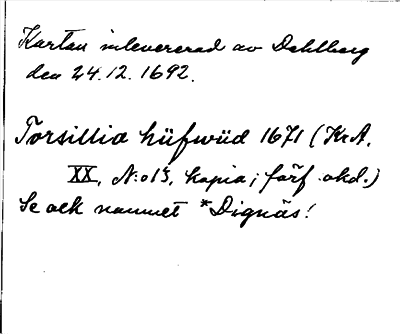 Kartan inlevererad av Dahlberg
den 24.12.1692.
Torsillia hüfwüd 1671 (KrA,
XX, N:o 13, kopia; förf. okd.)
Se ock namnet *Dignäs!